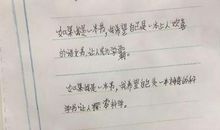 如果我是一本书，我希望自己是一本让人欢喜
的语文书，让人
如果我是一本书，我希望自己是一本神奇的科
学书，让人探索科学。